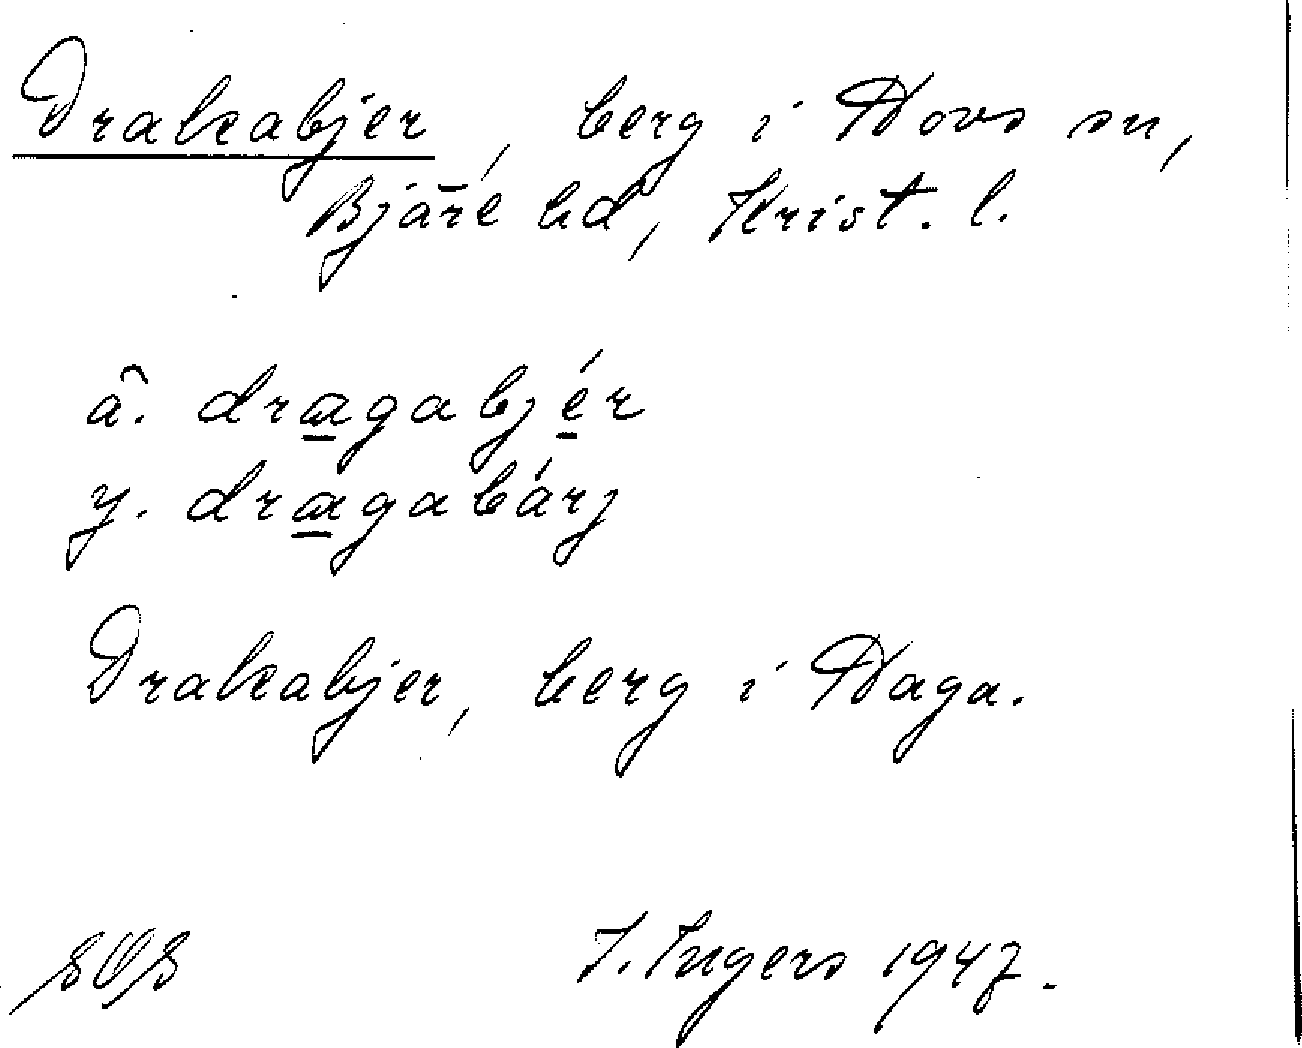 Drakabjer, berg i Hovs sn,
Bjäre hd, Krist. l.
â. dragabjér
y. dragabárj
Drakabjer, berg i Haga.
SOS I. Ingers 1947.